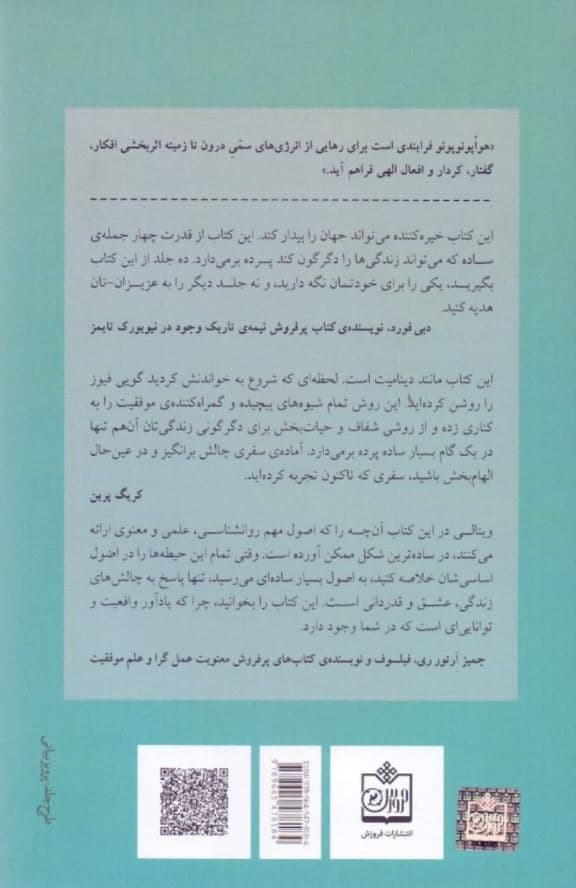 «هوآپونوپونو فرایندی است برای رهایی از انرژی‌های سمّیِ درون تا زمینه اثربخشی افکار،
گفتار، کردار و افعال الهی فراهم آید.»
این کتاب خیره‌کننده می‌تواند جهان را بیدار کند. این کتاب از قدرت چهار جمله‌ی
ساده که می‌تواند زندگی‌ها را دگرگون کند پرده برمی‌دارد. ده جلد از این کتاب
بگیرید، یکی را برای خودتمان نگه دارید، و نه جلد دیگر را به عزیزان-تان
هدیه کنید.
دبی فورد، نویسنده‌ی کتاب پرفروش نیمه‌ی تاریک وجود در نیویورک تایمز
این کتاب مانند دینامیت است. لحظه‌ای که شروع به خواندنش کردید گویی فیوز
را روشن کرده‌اید! این روش تمام شیوه‌های پیچیده و گمراه‌کننده‌ی موفقیت را به
کناری زده و از روشی شفاف و حیات‌بخش برای دگرگونی زندگی‌تان آن‌هم تنها
در یک گام بسیار ساده پرده برمی‌دارد. آماده‌ی سفری چالش برانگیز و در عین‌حال
الهام‌بخش باشید، سفری که تاکنون تجربه کرده‌اید.
کریگ پرین
ویتالی در این کتاب آن‌چه را که اصول مهم روانشناسی، علمی و معنوی ارائه
می‌کنند، در ساده‌ترین شکل ممکن آورده است. وقتی تمام این حیطه‌ها را در اصول
اساسی‌شان خلاصه کنید، به اصول بسیار ساده‌ای می‌رسید، تنها پاسخ به چالش‌های
زندگی، عشق و قدردانی است. این کتاب را بخوانید، چرا که یادآور واقعیت و
توانایی‌ای است که در شما وجود دارد.
جمیز آرتور ری، فیلسوف و نویسنده‌ی کتاب‌های پرفروش معنویت عمل گرا و علم موفقیت
فروزش
انتشارات فروزش